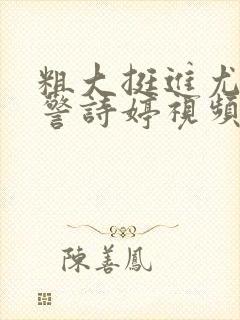 粗大挺進尤
警詩婷視頻
陳善鳳